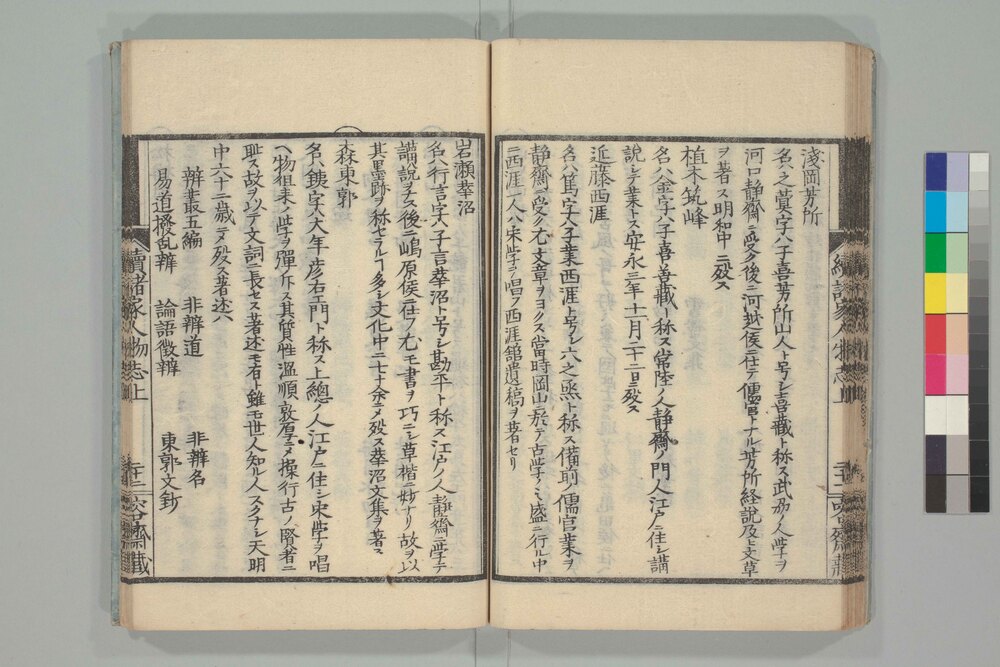 淺岡芳所
名ハ之莫字ハ子喜芳所山人ト号シ喜藏ト称ス武刕ノ人学ヲ
河口静齋ニ受ク後ニ河越侯ニ仕テ儒官トナル芳所経説及ヒ文草
ヲ著ス明和中ニ殁ス
植木筑峰
名ハ金字ハ子喜善藏ト称ス常陸ノ人静齋ノ門人江戸ニ住シ講
説シテ業トス安永三年十一月二十二日ニ殁ス
近藤西涯
名ハ篤字ハ子業西涯ト号シ六之烝ト称ス備前ノ儒官業ヲ
静齋ニ受ク尤文章ヲヨクス當時岡山ニ於テ古学大ニ盛ニ行ル中
ニ西涯一人ハ宋学ヲ唱フ西涯館遺稿ヲ著セリ
續諸家人物志上
岩瀬華沼
名ハ行言字ハ子言華沼ト号シ勘平ト称ス江戸ノ人静齋ニ学テ
講説ヲス後ニ嶋原侯ニ仕フ尤モ書ヲ巧ニシ草楷ニ妙ナリ故ヲ以
其墨跡ヲ称セラルヿ多シ文化中ニ七十余ニメ殁ス華沼文集ヲ著ス
森東郭
名ハ鉄字ハ大年彦右エ門ト称ス上總ノ人江戸ニ住シ宋学ヲ唱
ヘ物徂来ノ学ヲ彈斥ス其質性溫順敦厚ニメ操行古ノ賢者ニ
耻ス故ヲ以テ文詞ニ長セス著述モ右ト雖モ世人知ル人スクナシ天明
中六十二歳ニメ殁ス著述ハ
辨叢五編 非辨道 非辨名
易道撥乱辨 論語徴辨 東郭文鈔
續諸家人物志上